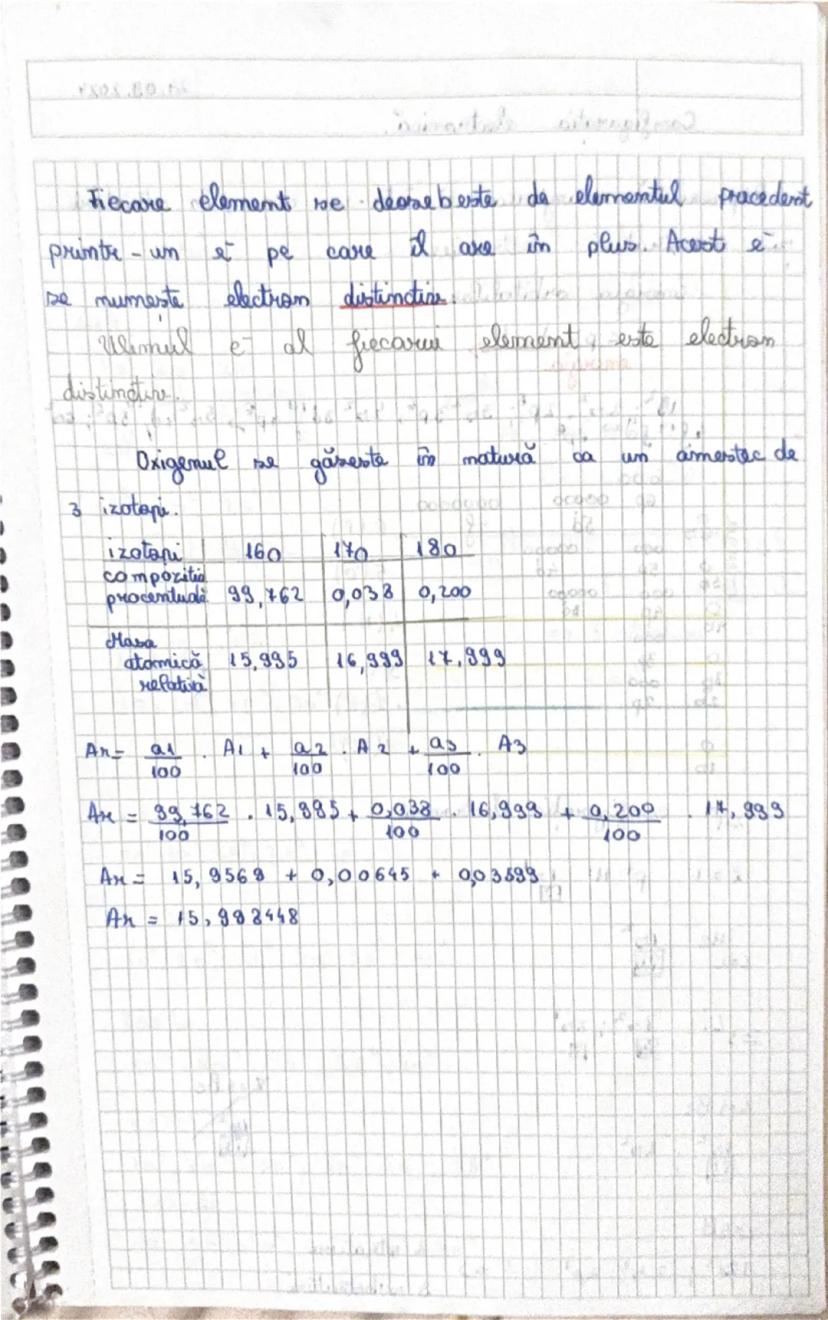 Fiecare element se deosebeste de elementul precedent
printr-un e⁻ pe care îl are în plus. Acest e⁻
se numește electron distinctiv.
Ultimul e⁻ al fiecarui element este electron
distinctiv.
Oxigenul se găsește în natură ca un amestec de
3 izotopi.
izotopi 16O 17O 18O
compozitia
procentuală 99,762 0,038 0,200
Masa
atomică 15,995 16,999 17,999
relativă
Ar = a1/100 · A1 + a2/100 · A2 + a3/100 · A3
Ar = 99,762/100 · 15,995 + 0,038/100 · 16,999 + 0,200/100 · 17,999
Ar = 15,9569 + 0,00645 + 0,03599
Ar = 15,998448